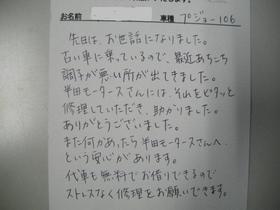 お名前 車種 プジョー106
先日は、お世話になりました。
古い車に乗っているので、最近あちこち
調子が悪い所が出てきました。
半田モータースさんには、それをピタッと
修理していただき、助かりました。
ありがとうございました。
また何かあったら半田モータースさんへ、
という安心があります。
代車も無料でお借りできるので
ストレスなく修理をお願いできます。